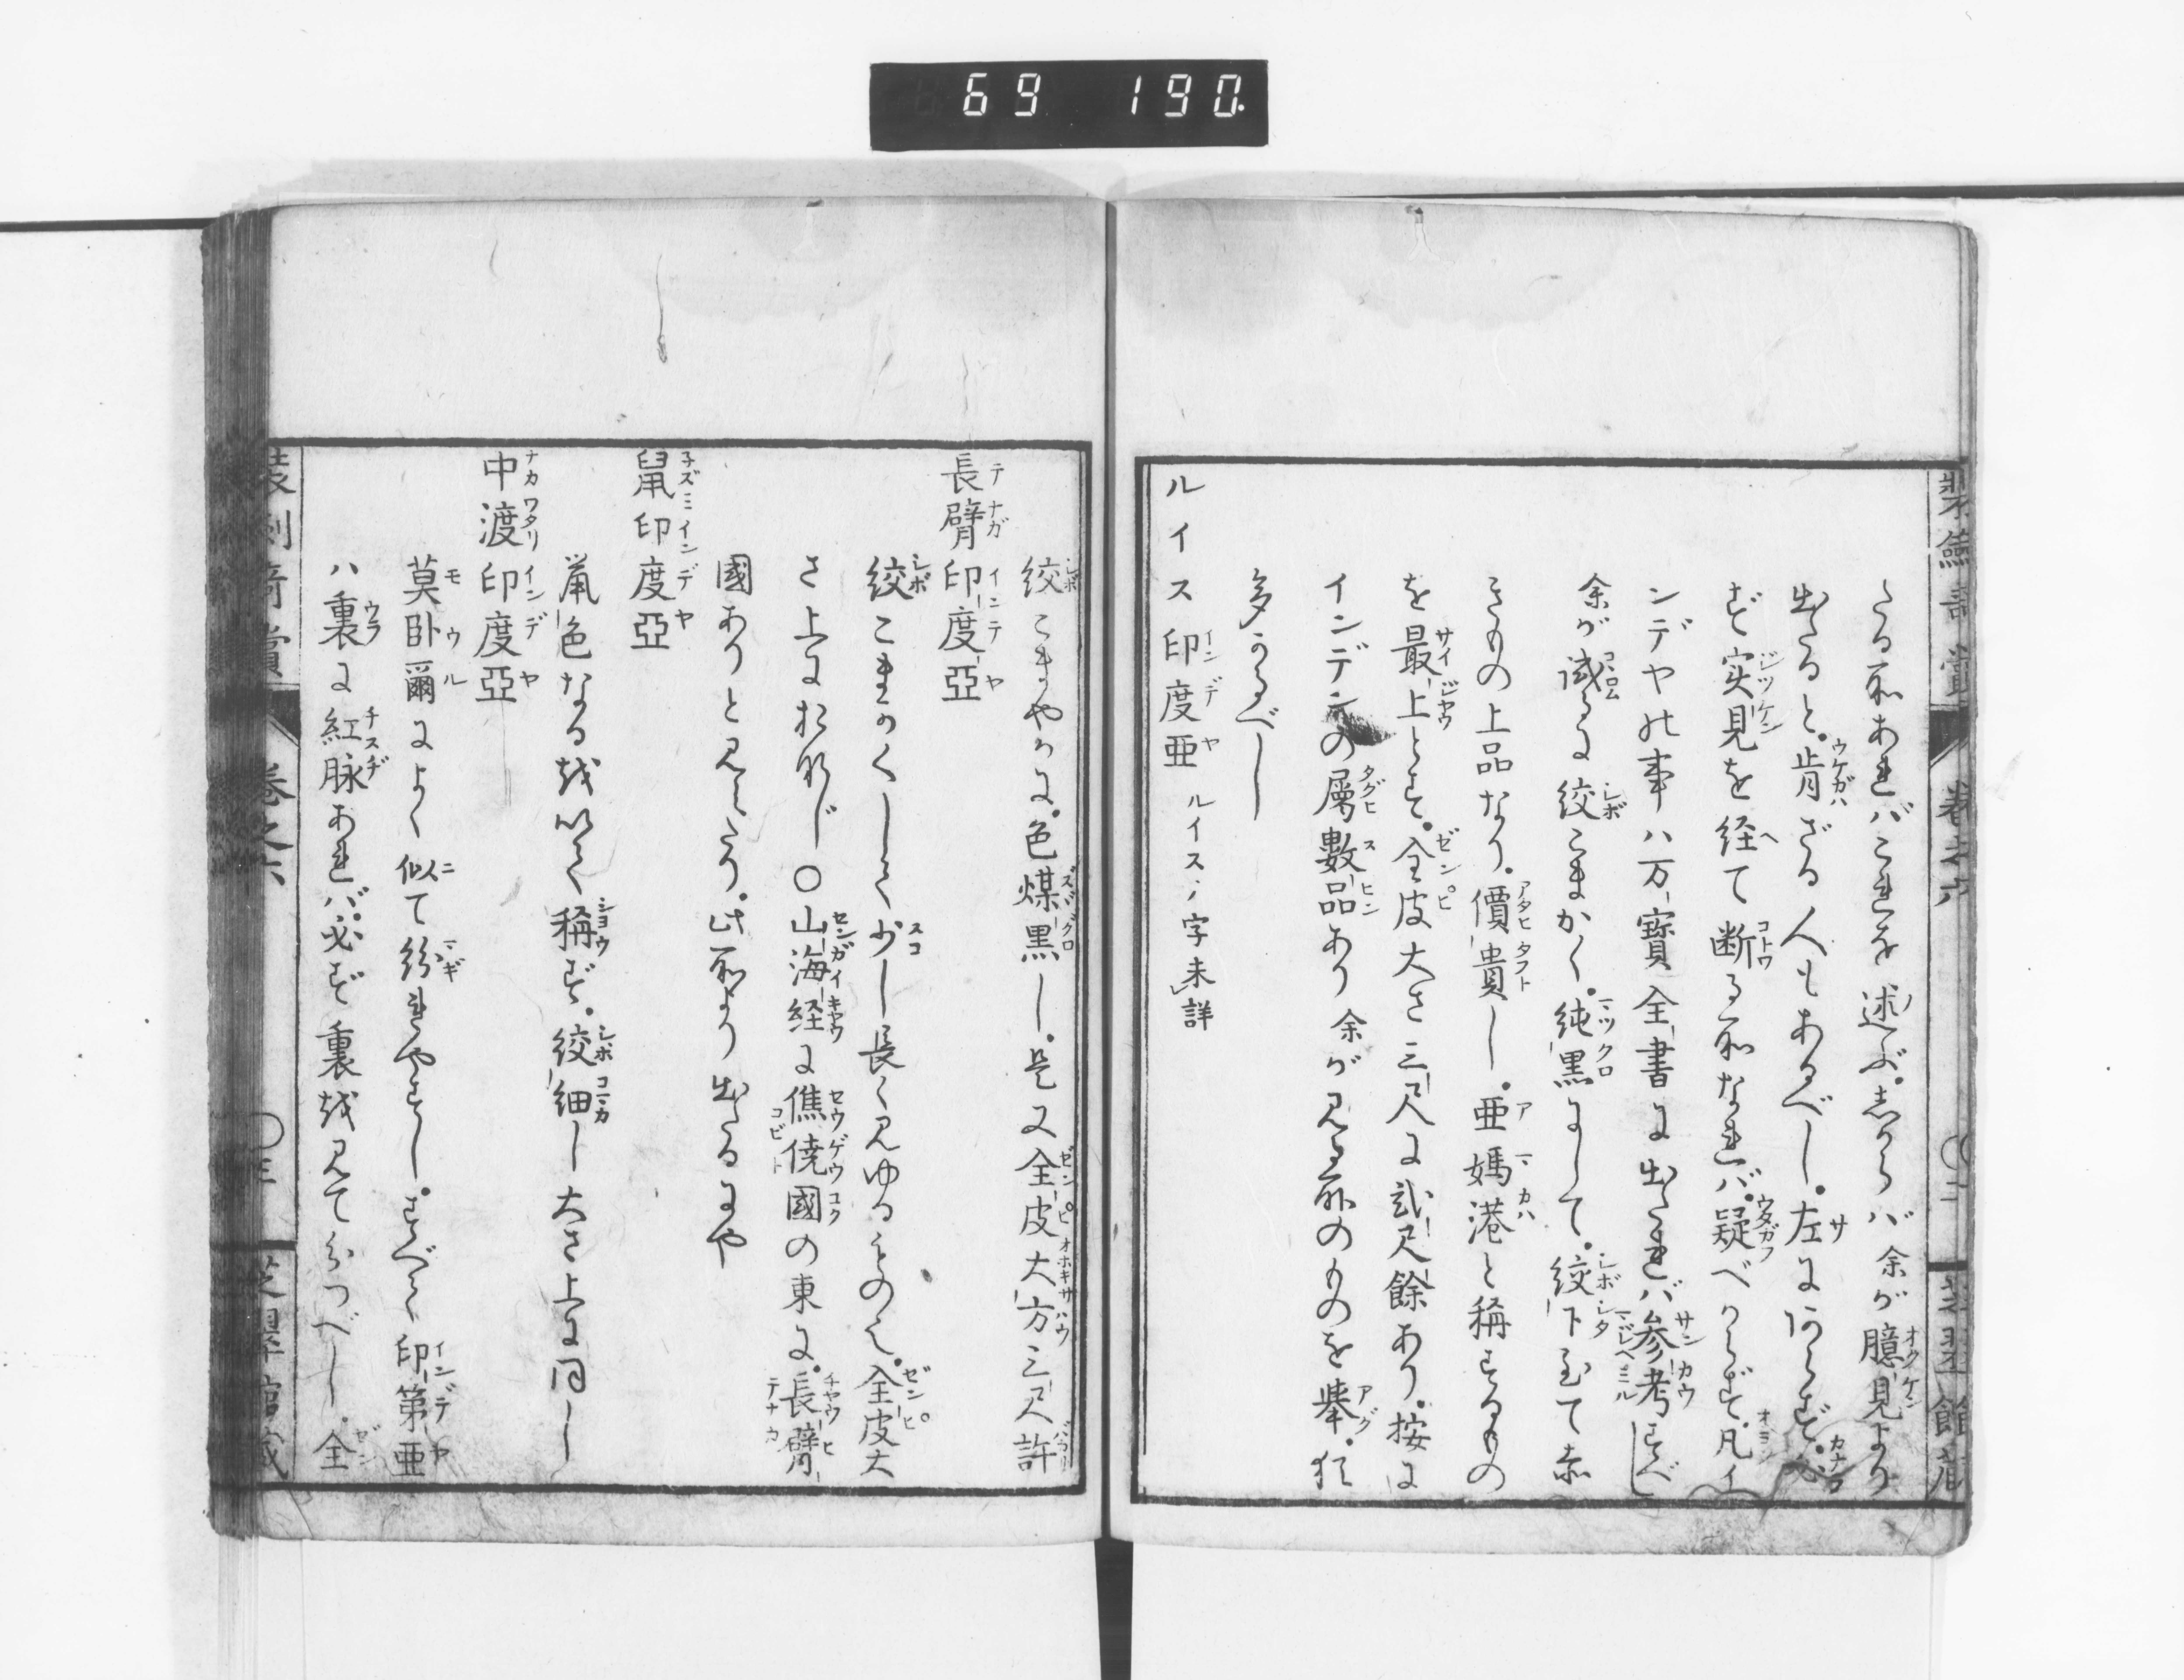 69 190
たる所あれバこれを述ぶ。志からバ余が臆見より
出たると。肯ざる人もあるべし。左にあらず。必
ず実見を経て断る所なれバ。疑べからず。凡イ
ンデヤの事ハ万寳全書に出たれバ参考すべし
余が試るに絞こまかく。純黒にして。絞下至て赤
きもの上品なり。價貴し。亜媽港と稱するもの
を最上とす。全皮大さ三尺に弐尺餘あり。按に
インデンの属數品あり余が見る所のものを挙。猶
多かるべし
ルイス印度亜 ルイスノ字未詳
絞こまやかに。色煤黒し。是又全皮大方三尺許
長臂印度亞
絞こまかくして少し長く見ゆるもの也。全皮大
さ上におなじ〇山海経に僬僥國の東に。長臂
國ありと見へたり。此所より出たるにや
鼠印度亞
鼠色なるを以て稱ず。絞細し大さ上に同し
中渡印度亞
莫臥爾によく似て紛れやすし。すべて印第亜
ハ裏に紅脉あれバ。必ず裏を見て分つべし。全
装劍奇賞 巻之六 〇三 芝翠館藏